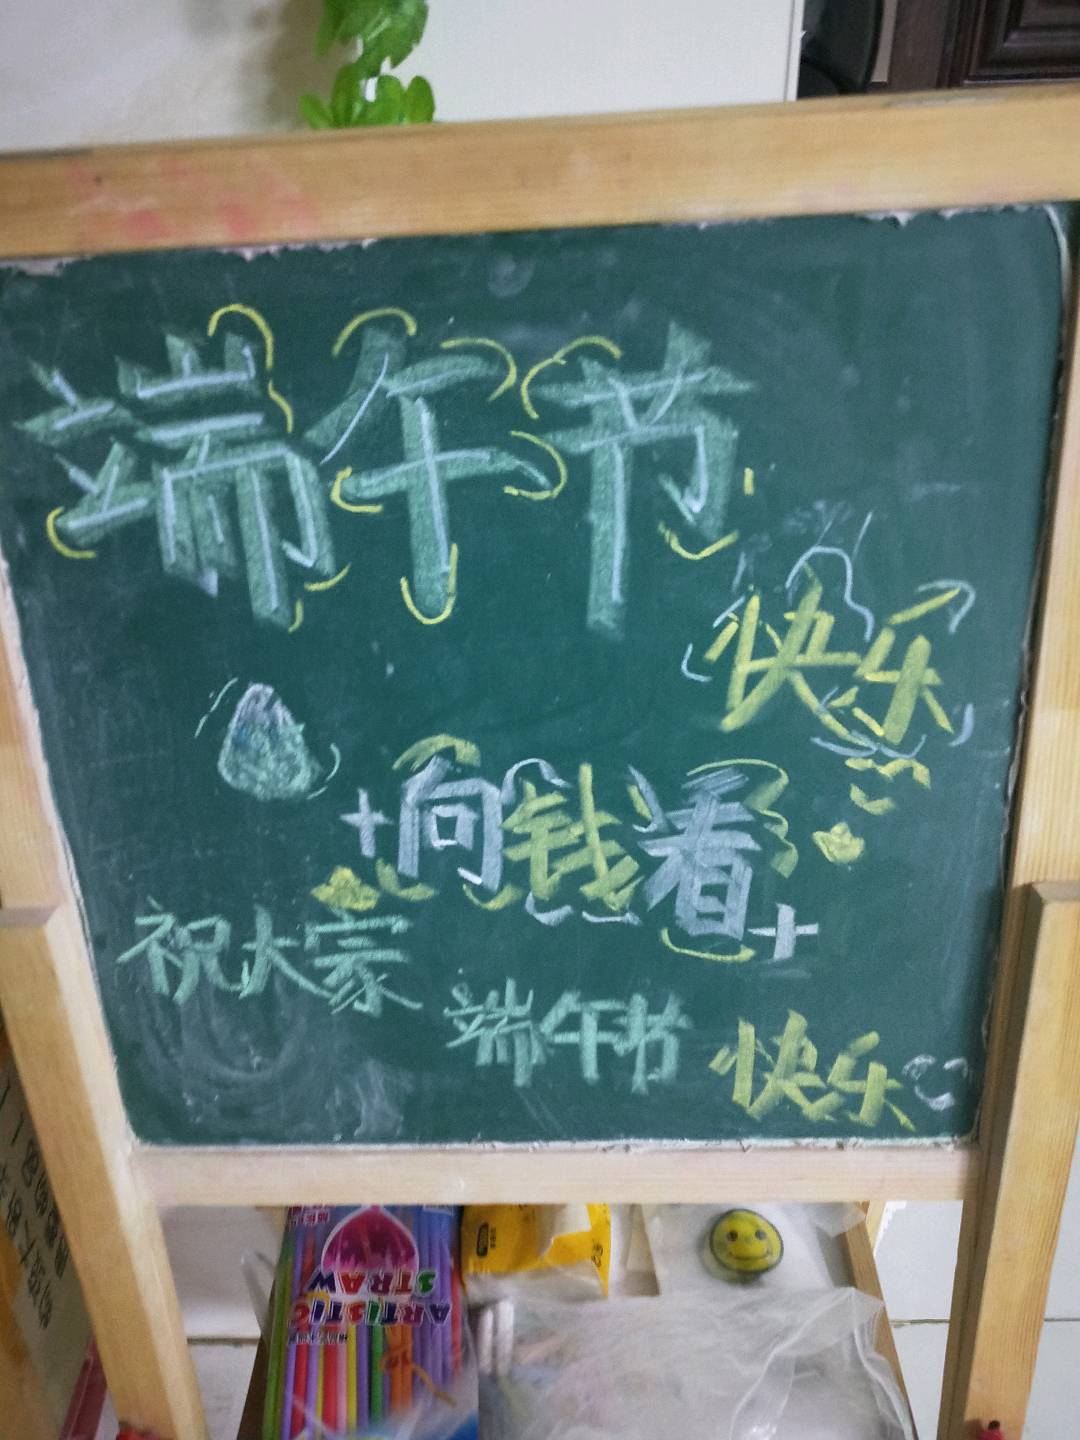 端午节
快乐
+向钱看+
祝大家
端午节
快乐
ARTISTIC
STRAW